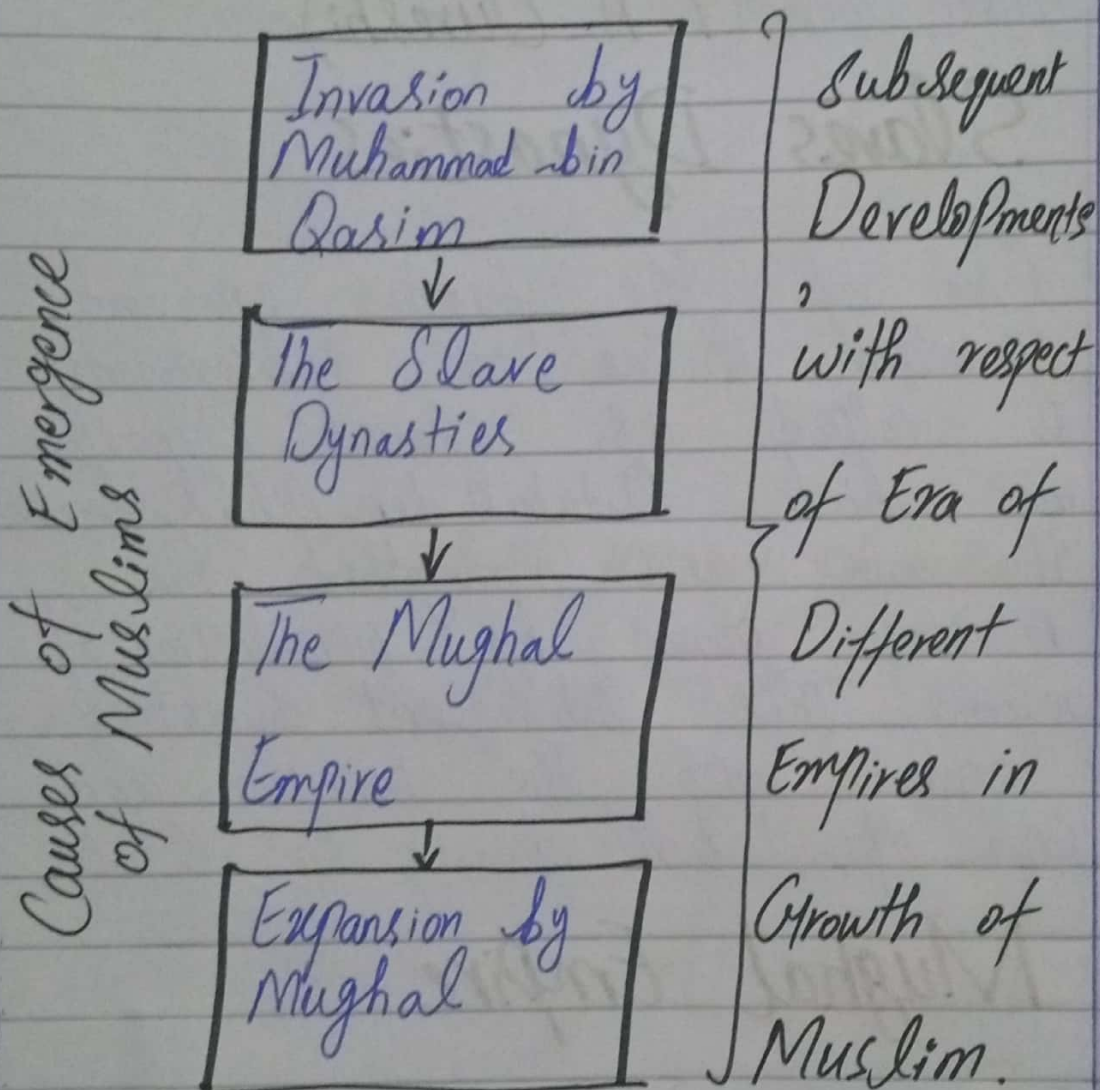 Causes of Emergence
of Muslims
Invasion by
Muhammad bin
Qasim
The Slave
Dynasties
The Mughal
Empire
Expansion by
Mughal
Subsequent
Developments
,
with respect
of Era of
Different
Empires in
Growth of
Muslim.